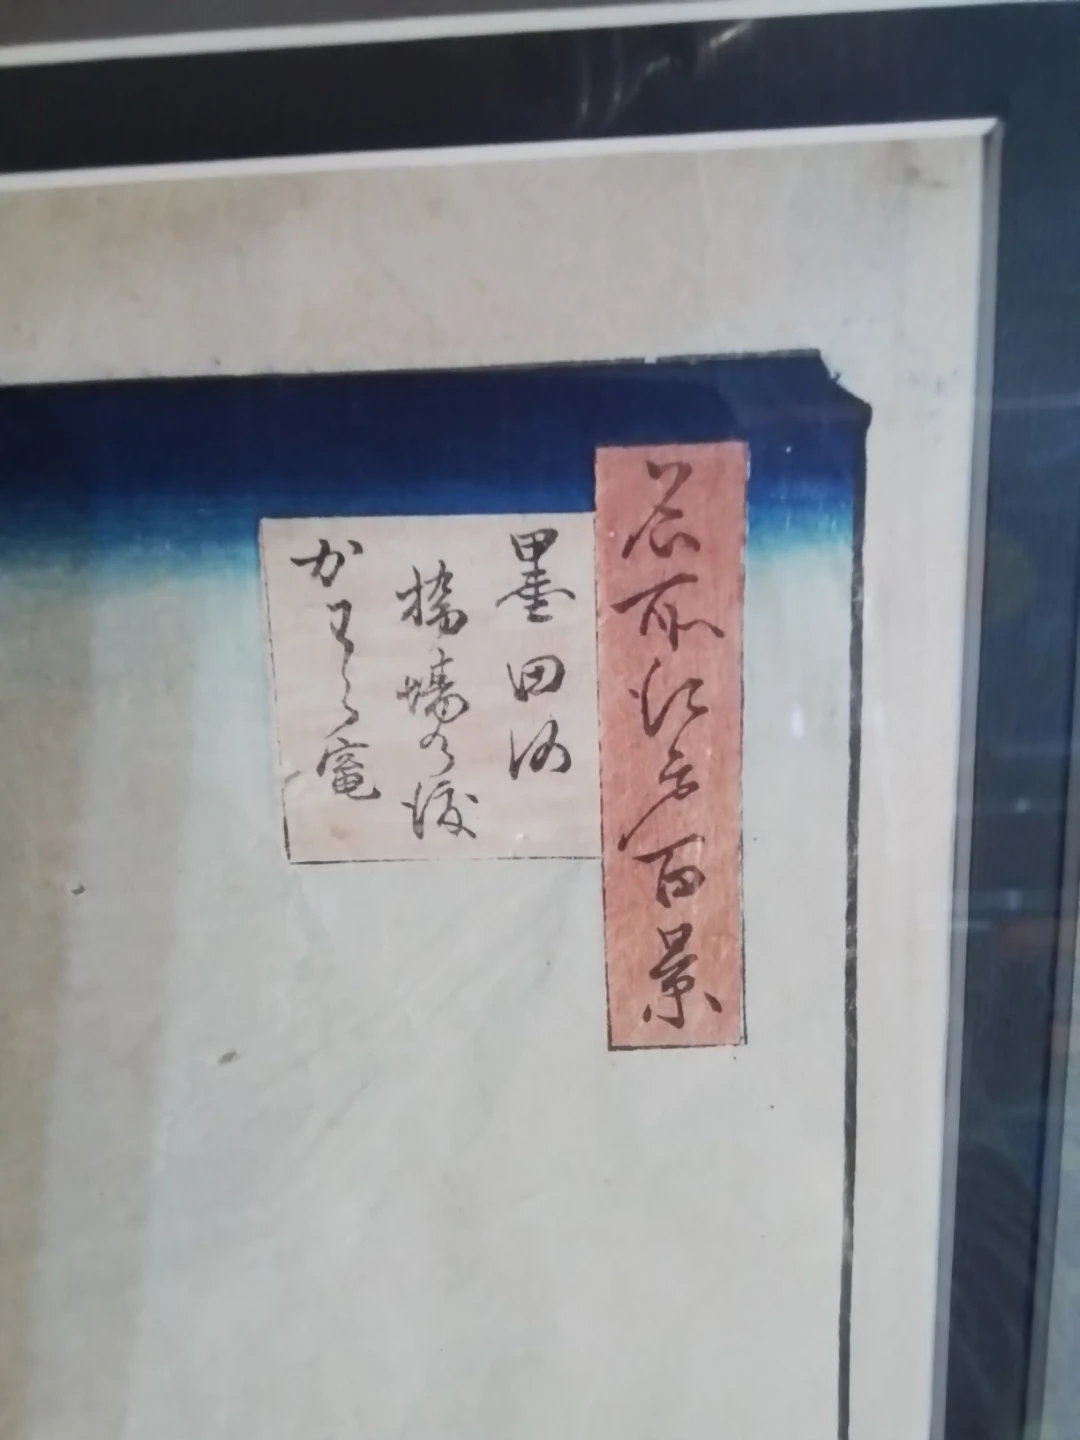 名所江戸百景
墨田河
橋場の渡
かわら竈